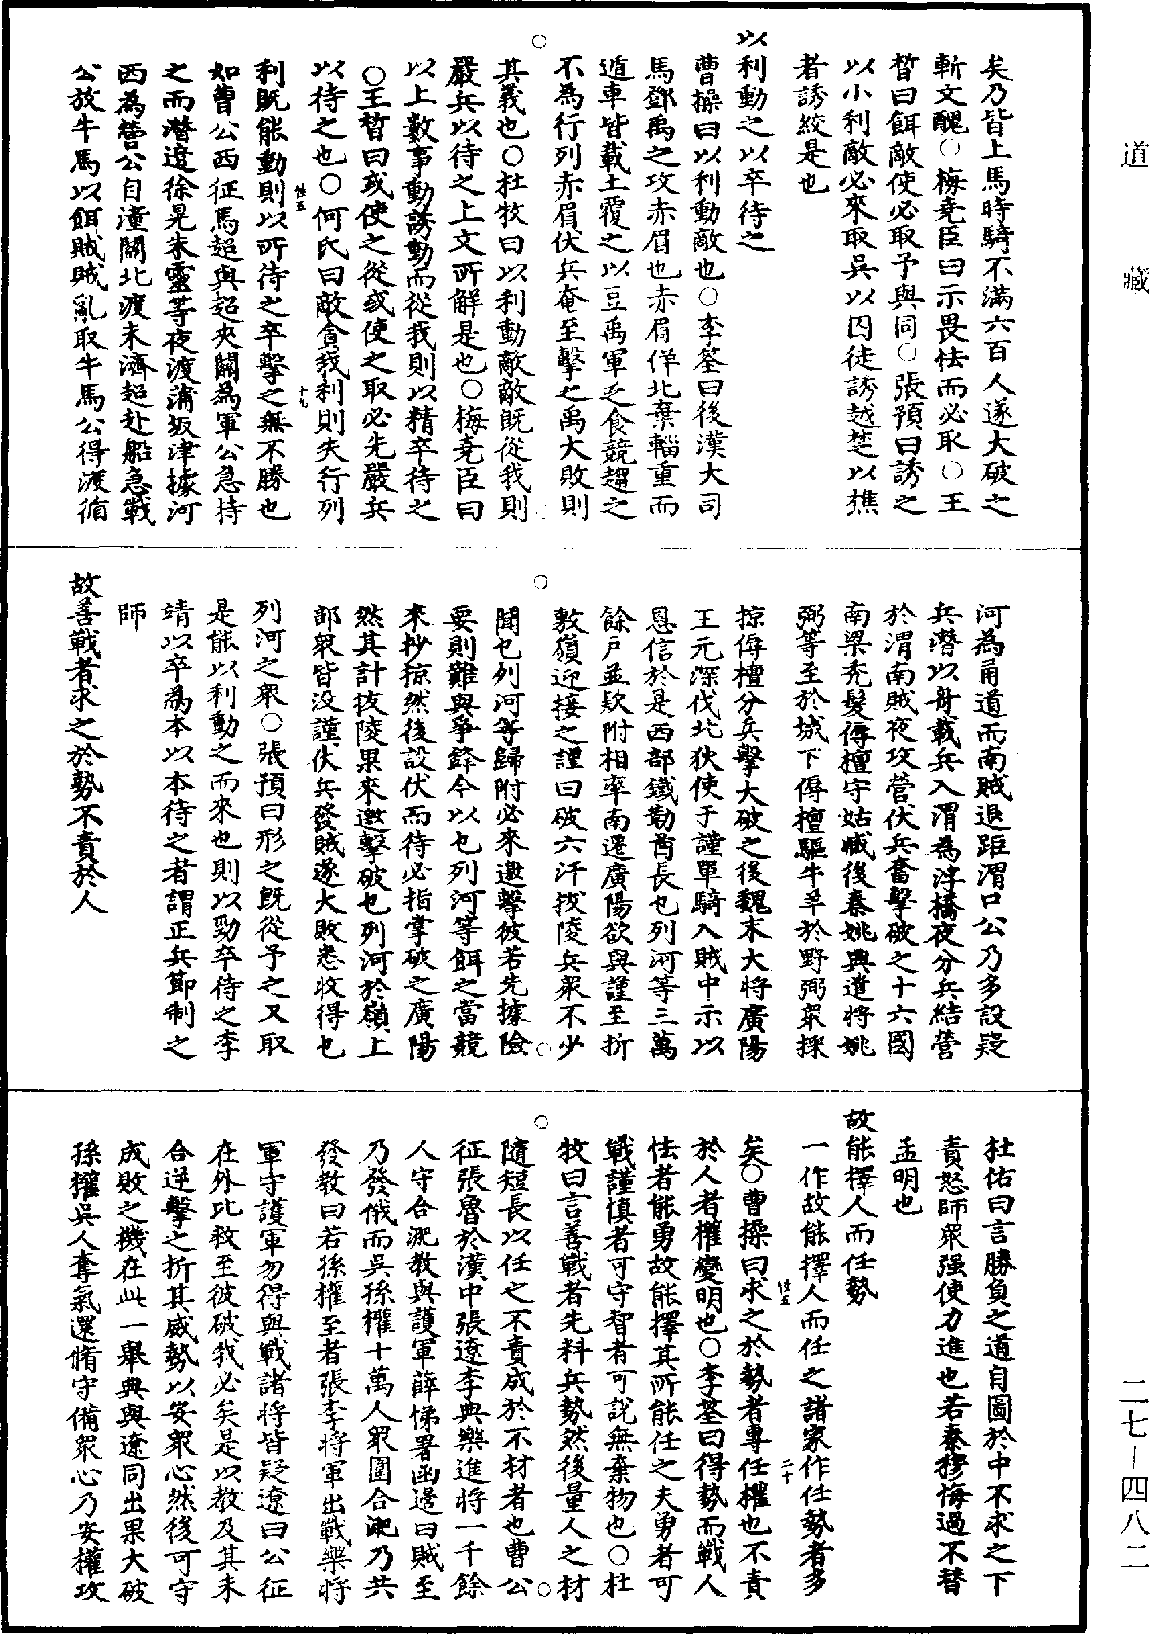 矣乃皆上馬時騎不滿六百人遂大破之
斬文醜○梅堯臣曰示畏怯而必取○王
晳曰餌敵使必取予與同○張預曰誘之
以小利敵必來取吳以囚徒誘越楚以樵
者誘絞是也
以利動之以卒待之
曹操曰以利動敵也○李筌曰後漢大司
馬鄧禹之攻赤眉也赤眉佯北棄輜重而
遁車皆載土覆之以豆禹軍乏食競趨之
不為行列赤眉伏兵奄至擊之禹大敗則
其義也○杜牧曰以利動敵敵既從我則
嚴兵以待之上文所解是也○梅堯臣曰
以上數事動誘動而從我則以精卒待之
○王晳曰或使之從或使之取必先嚴兵
以待之也○何氏曰敵貪我利則失行列
利既能動則以所待之卒擊之無不勝也
如曹公西征馬超與超夾關為軍公急持
之而潛遣徐晃朱靈等夜渡蒲坂津據河
西為營公自潼關北渡未濟超赴船急戰
公放牛馬以餌賊賊亂取牛馬公得渡循
河為甬道而南賊退距渭口公乃多設疑
兵潛以舟載兵入渭為浮橋夜分兵結營
於渭南賊夜攻營伏兵奮擊破之十六國
南梁禿髮傉檀守姑臧後秦姚興遣將姚
弼等至於城下傉檀驅牛羊於野弼眾採
掠傉檀分兵擊大破之後魏末大將廣陽
王元深伐北狄使于謹單騎入賊中示以
恩信於是西部鐵勒酋長乜列河等三萬
餘戶並欵附相率南遷廣陽欲與謹至折
敷嶺迎接之謹曰破六汗拔陵兵眾不少
聞乜列河等歸附必來邀擊彼若先據險
要則難與爭鋒今以乜列河等餌之當競
來抄掠然後設伏而待必指掌破之廣陽
然其計拔陵果來邀擊破乜列河於嶺上
部眾皆沒謹伏兵發賊遂大敗悉收得乜
列河之眾○張預曰形之既從予之又取
是能以利動之而來也則以勁卒待之李
靖以卒為本以本待之者謂正兵節制之
師
故善戰者求之於勢不責於人
杜佑曰言勝負之道自圖於中不求之下
責怒師眾强使力進也若秦穆悔過不替
孟明也
故能擇人而任勢
一作故能擇人而任之諸家作任勢者多
矣○曹操曰求之於勢者專任權也不責
於人者權變明也○李筌曰得勢而戰人
怯者能勇故能擇其所能任之夫勇者可
戰謹慎者可守智者可說無棄物也○杜
牧曰言善戰者先料兵勢然後量人之材
隨短長以任之不責成於不材者也曹公
征張魯於漢中張遼李典樂進將一千餘
人守合淝教與護軍薛悌署函邊曰賊至
乃發俄而吳孫權十萬人眾圍合淝乃共
發教曰若孫權至者張李將軍出戰樂將
軍守護軍勿得與戰諸將皆疑遼曰公征
在外比救至彼破我必矣是以教及其未
合逆擊之折其威勢以安眾心然後可守
成敗之機在此一舉典與遼同出果大破
孫權吳人奪氣還脩守備眾心乃安權攻
道藏
二七－四八二